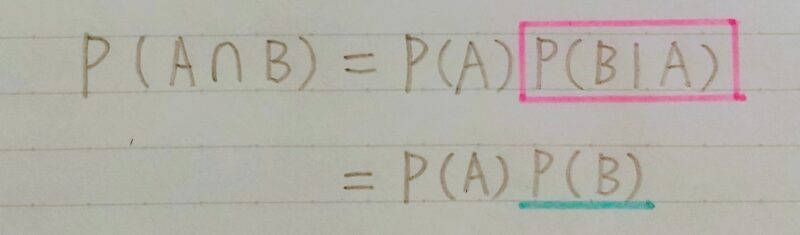 P(A∩B) = P(A)P(B|A)
= P(A)P(B)